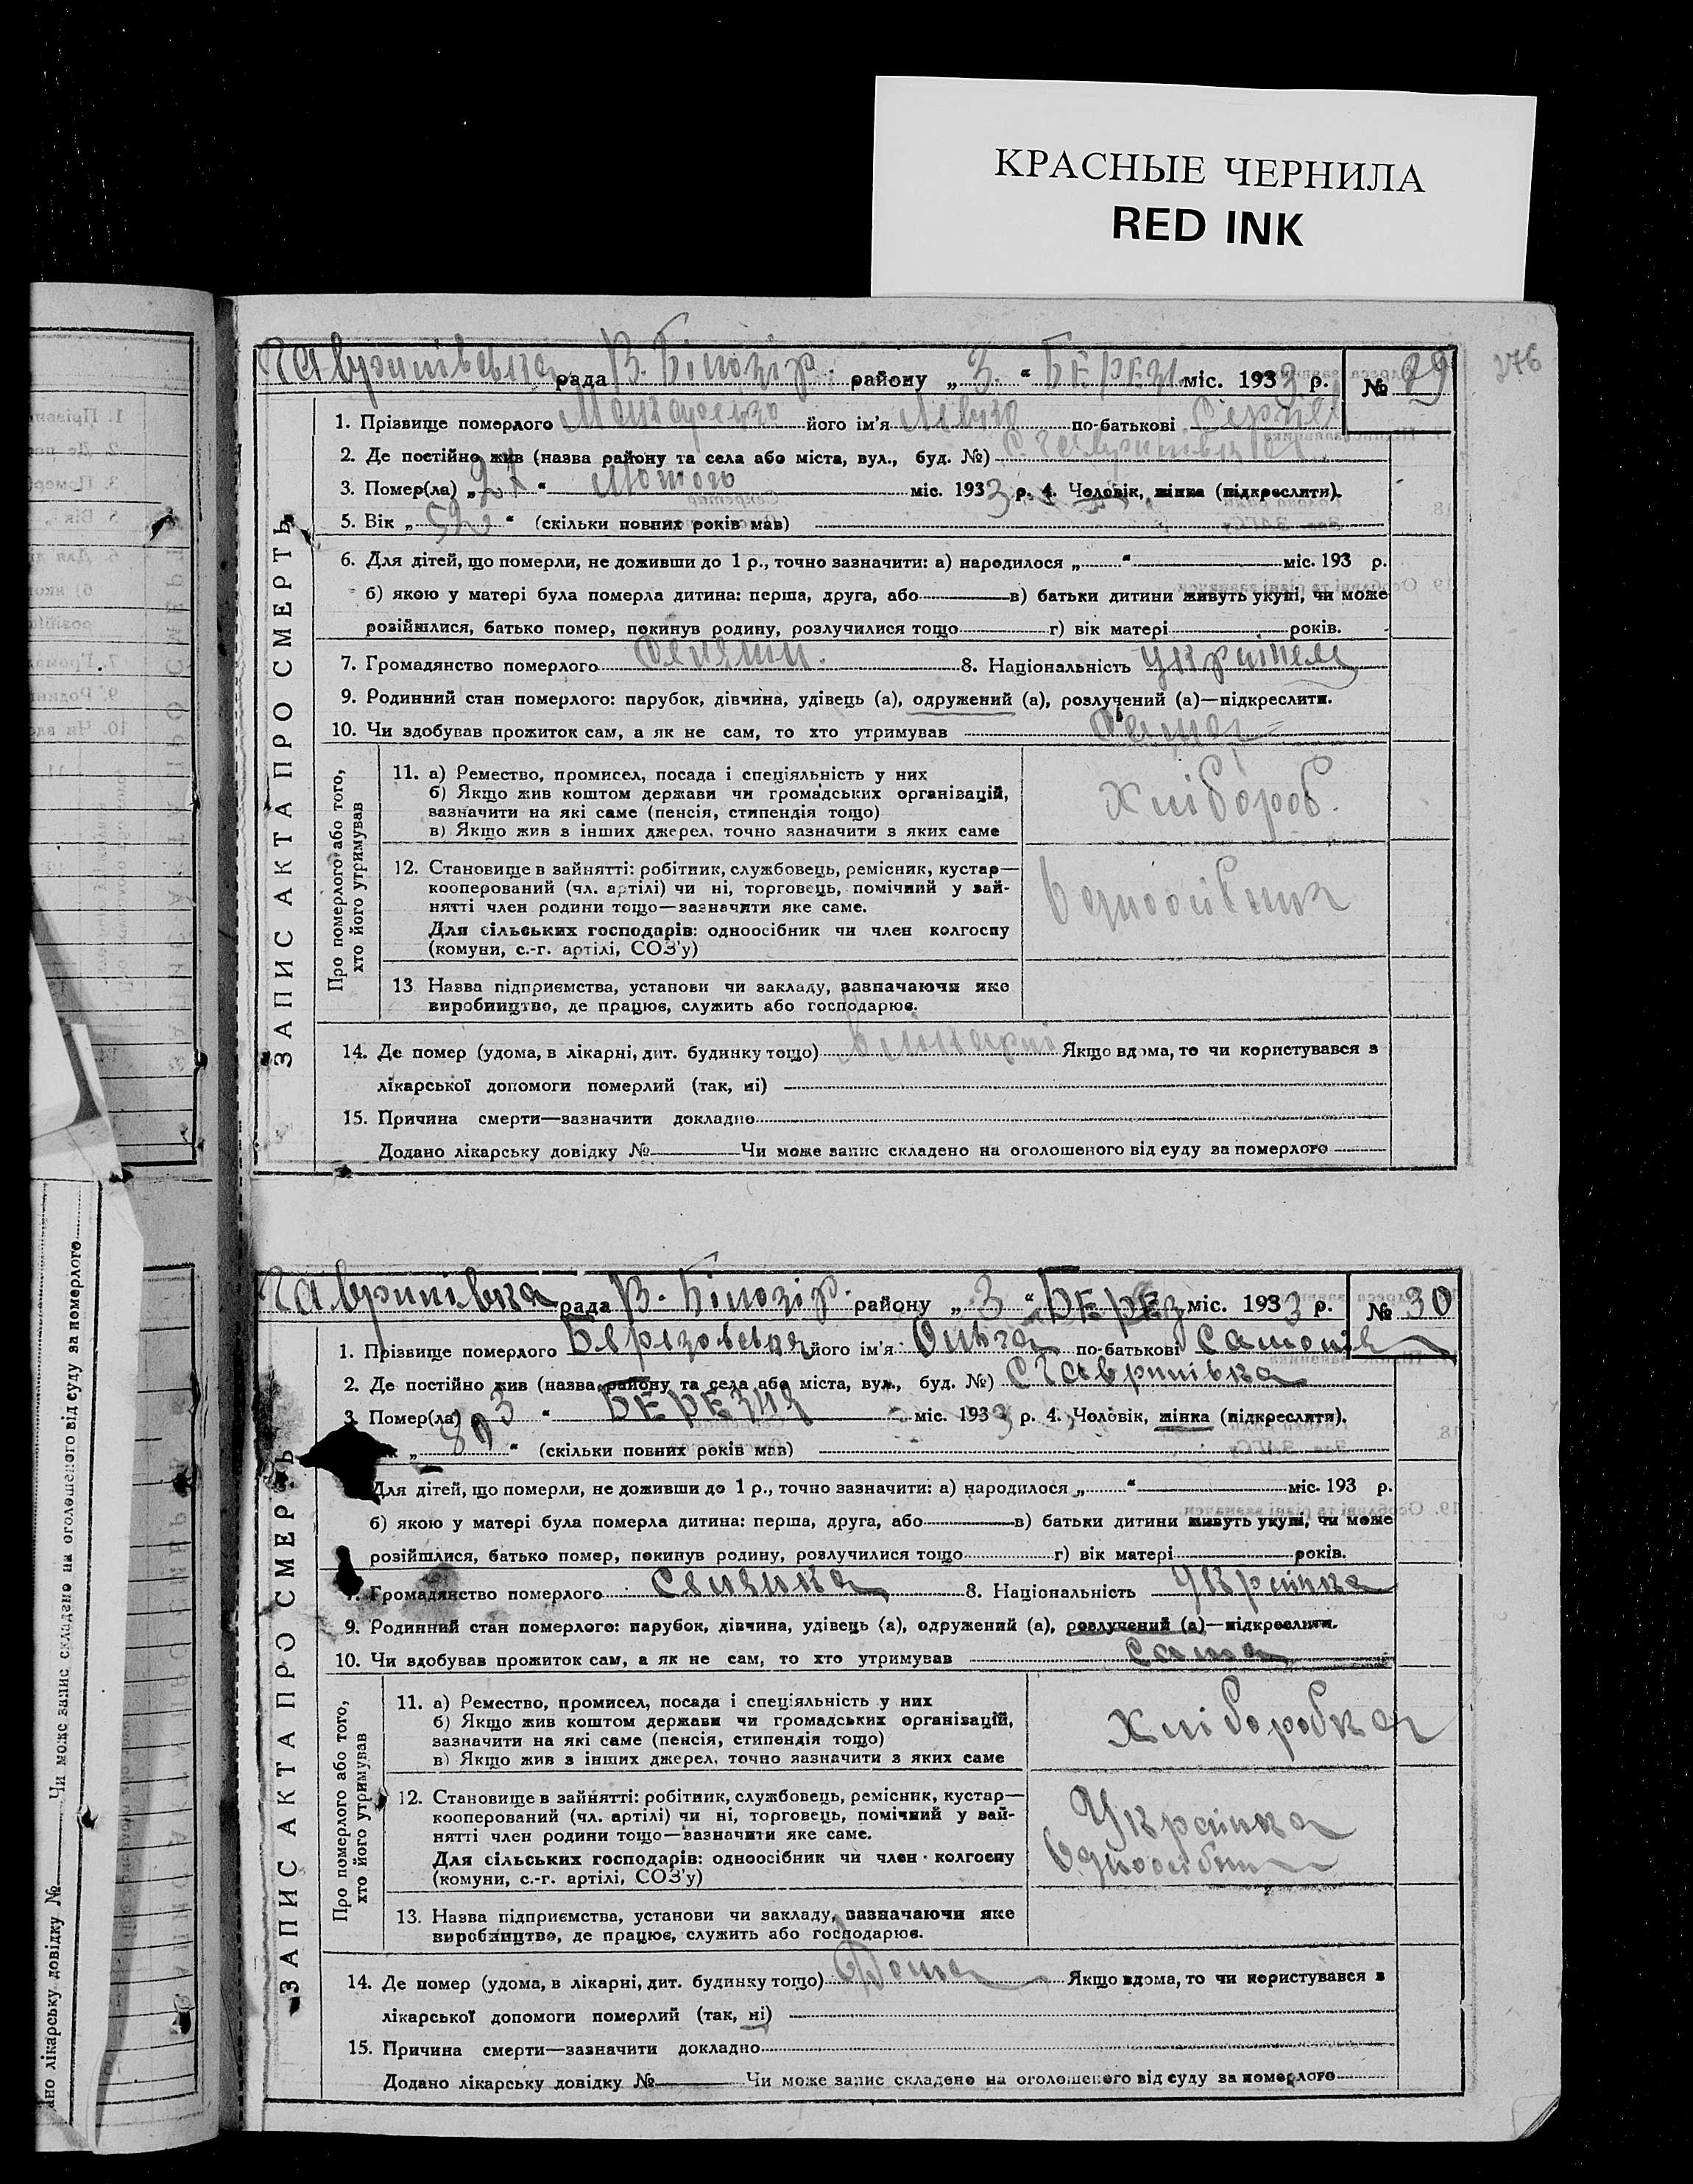 КРАСНЫЕ ЧЕРНИЛА
RED INK
276
рада В. Білозір. району „ 3 “ БЕРЕЗН. міс. 1933 р. № 29
ЗАПИС АКТА ПРО СМЕРТЬ
1. Прізвище померлого його ім'я по-батькові
2. Де постійно жив (назва району та села або міста, вул., буд. №)
3. Помер(ла) „ “ Лютого міс. 1933 р. 4. Чоловік, жінка (підкреслити).
5. Вік „ “ (скільки повних років мав)
6. Для дітей, що померли, не доживши до 1 р., точно зазначити: а) народилося „ “ міс. 193 р.
б) якою у матері була померла дитина: перша, друга, або в) батьки дитини живуть укупі, чи може
розійшлися, батько помер, покинув родину, розлучилися тощо г) вік матері років.
7. Громадянство померлого 8. Національність
9. Родинний стан померлого: парубок, дівчина, удівець (а), одружений (а), розлучений (а)—підкреслити.
10. Чи здобував прожиток сам, а як не сам, то хто утримував
Про померлого або того, хто його утримував
11. а) Ремество, промисел, посада і спеціяльність у них
б) Якщо жив коштом держави чи громадських організацій,
зазначити на які саме (пенсія, стипендія тощо)
в) Якщо жив з інших джерел, точно зазначити з яких саме
Хлібороб.
12. Становище в зайнятті: робітник, службовець, ремісник, кустар—
кооперований (чл. артілі) чи ні, торговець, помічний у зай-
нятті член родини тощо—зазначити яке саме.
Для сільських господарів: одноосібник чи член колгоспу
(комуни, с.-г. артілі, СОЗ'у)
Одноосібник
13. Назва підприємства, установи чи закладу, зазначаючи яке
виробництво, де працює, служить або господарює.
14. Де помер (удома, в лікарні, дит. будинку тощо) Якщо вдома, то чи користувався з
лікарської допомоги померлий (так, ні)
15. Причина смерти—зазначити докладно
Додано лікарську довідку № Чи може запис складено на оголошеного від суду за померлого
Гаврилівка рада В. Білозір. району „ 3 “ БЕРЕЗ міс. 1933 р. № 30
ЗАПИС АКТА ПРО СМЕРТЬ
1. Прізвище померлого Берізовська його ім'я Ольга по-батькові
2. Де постійно жив (назва району та села або міста, вул., буд. №) С Гаврилівка
3. Помер(ла) „ 3 “ БЕРЕЗНЯ міс. 1933 р. 4. Чоловік, жінка (підкреслити).
„ “ (скільки повних років мав)
Для дітей, що померли, не доживши до 1 р., точно зазначити: а) народилося „ “ міс. 193 р.
б) якою у матері була померла дитина: перша, друга, або в) батьки дитини живуть укупі, чи може
розійшлися, батько помер, покинув родину, розлучилися тощо г) вік матері років.
7. Громадянство померлого Селянка 8. Національність Українка
9. Родинний стан померлого: парубок, дівчина, удівець (а), одружений (а), розлучений (а)—підкреслити.
10. Чи здобував прожиток сам, а як не сам, то хто утримував Сама
Про померлого або того, хто його утримував
11. а) Ремество, промисел, посада і спеціяльність у них
б) Якщо жив коштом держави чи громадських організацій,
зазначити на які саме (пенсія, стипендія тощо)
в) Якщо жив з інших джерел, точно зазначити з яких саме
Хліборобка
12. Становище в зайнятті: робітник, службовець, ремісник, кустар—
кооперований (чл. артілі) чи ні, торговець, помічний у зай-
нятті член родини тощо—зазначити яке саме.
Для сільських господарів: одноосібник чи член колгоспу
(комуни, с.-г. артілі, СОЗ'у)
Українка
13. Назва підприємства, установи чи закладу, зазначаючи яке
виробництво, де працює, служить або господарює.
14. Де помер (удома, в лікарні, дит. будинку тощо) Дома Якщо вдома, то чи користувався з
лікарської допомоги померлий (так, ні)
15. Причина смерти—зазначити докладно
Додано лікарську довідку № Чи може запис складено на оголошеного від суду за померлого
ано лікарську довідку № Чи може запис складено на оголошеного від суду за померлого